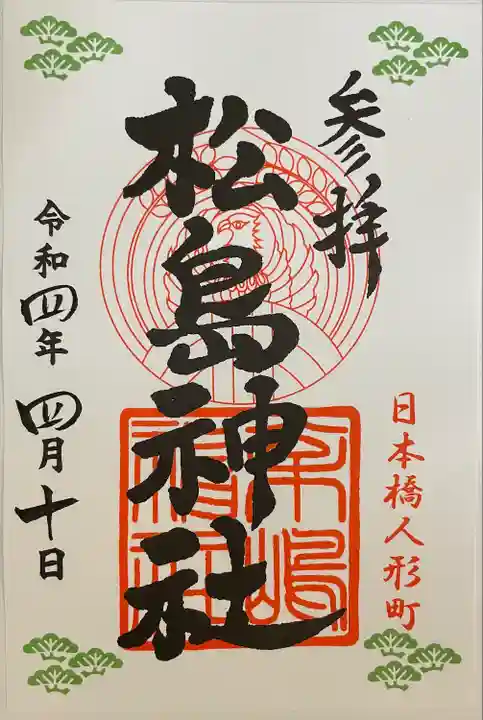 参拝
日本橋人形町
松島神社
令和四年四月十日